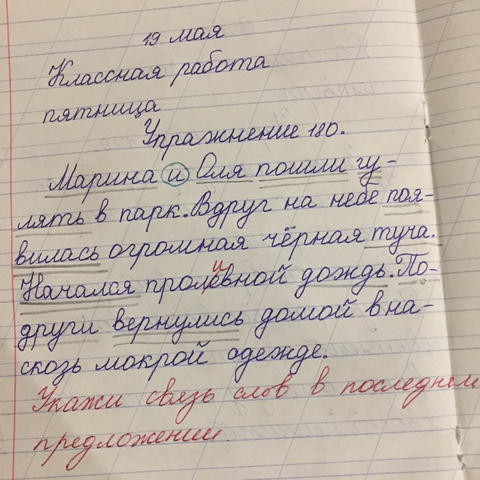 19 мая
Классная работа
пятница
Упражнение 180.
Марина и Оля пошли гу-
лять в парк. Вдруг на небе поя-
вилась огромная чёрная туча.
Начался проливной дождь. По-
други вернулись домой в на-
сквозь мокрой одежде.
Укажи связь слов в последнем
предложении.